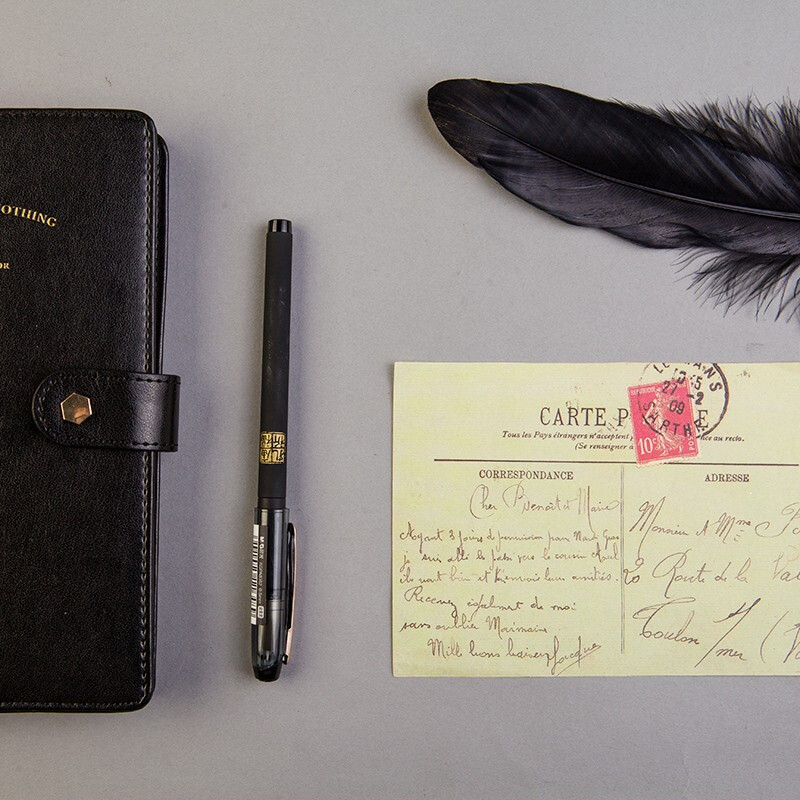 NOTHING
OR
M&G
CARTE P E
Tous les Pays étrangers n'acceptent nce au recto.
(Se renseigner à
LE MANS
27 -2
09
SARTHE
10c
CORRESPONDANCE
ADRESSE
Cher Benoit et Marie
Ayant 3 jours de permission pour Mardi Gras
je suis allé le passer le cousin
ils vont bien et t'envoie leurs amitiés.
Recevez également de moi
sans oublier Marraine
Mille bons baisers Jacques
Monsieur et Mme
20 Route de la
Toulon / mer